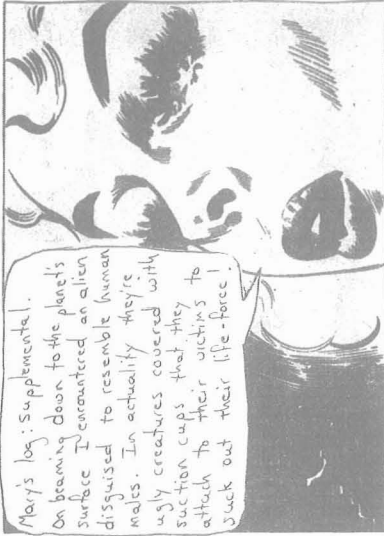 Mary's log: Supplemental.
On beaming down to the planet's
surface I encountered an alien
disguised to resemble human
males. In actuality they're
ugly creatures covered with
suction cups that they
attach to their victims to
suck out their life-force!